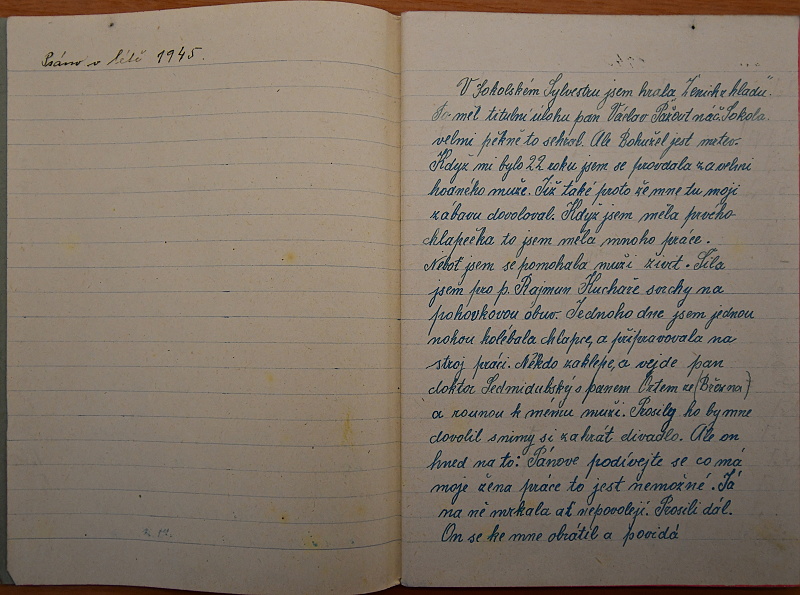 Psáno v létě 1945.
V Sokolském Sylvestru jsem hrála Ženich z kladu".
To měl titulní úlohu pan Václav náč. Sokola.
velmi pěkně to sehrál. Ale Bohužel jest mrtev.
Když mi bylo 22 roku jsem se provdala za velmi
hodného muže. Již také proto že mne tu moji
zábavu dovoloval. Když jsem měla prvého
chlapečka to jsem měla mnoho práce.
Neboť jsem se pomohala muži živit. Šila
jsem pro p. Rajmun Kuchaře svrchy na
pohovkovou obuv. Jednoho dne jsem jednou
nohou kolébala chlapce, a připravovala na
stroj práci. Někdo zaklepe, a vejde pan
doktor Sedmidubský s panem Ortem ze (Března)
a rovnou k mému muži. Prosily ho by mne
dovolil s nimy si zahrát divadlo. Ale on
hned na to: Pánove podívejte se co má
moje žena práce to jest nemožné. Já
na ně mrkala ať nepovolejí. Prosili dál.
On se ke mne obrátil a povídá